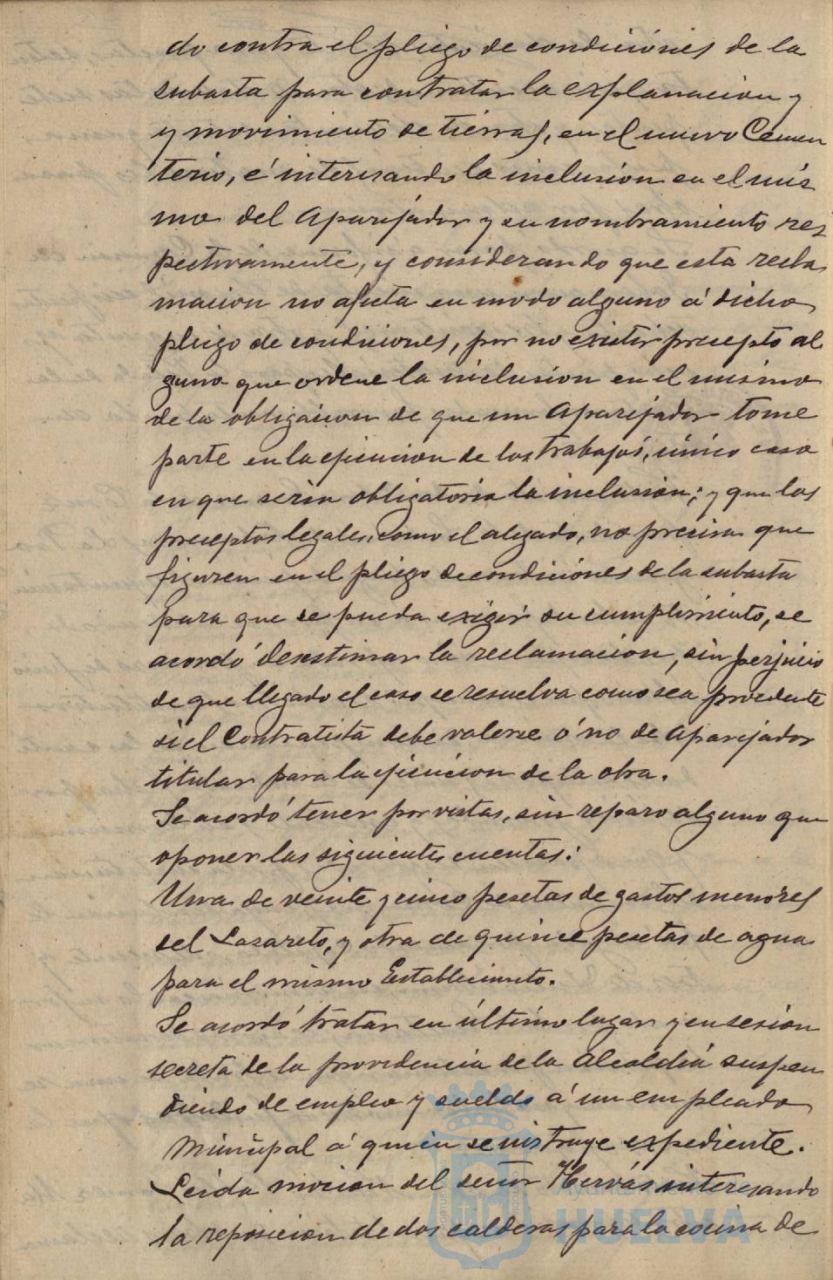 do contra el pliego de condiciónes de la
subasta para contratar la explanacion y
y movimiento de tierras, en el nuevo Cemen
terio, é interesando la inclusion en el mis
mo del Aparejador y su nombramiento res
pectivamente, y considerando que esta recla
macion no afecta en modo alguno á dicho
pliego de condiciones, por no existir precepto al
guno que ordene la inclusion en el mismo
de la obligacion de que un Aparejador tome
parte en la ejecucion de los trabajos, único caso
en que seria obligatoria la inclusion; y que los
preceptos legales, como el alegado, no precisa que
figuren en el pliego de condiciónes de la subasta
para que se pueda exigir su cumplimiento, se
acordó desestimar la reclamacion, sin perjuicio
de que llegado el caso se resuelva como sea procedente
si el Contratista debe valerse ó no de Aparejador
titular para la ejecucion de la obra.
Se acordó tener por vistas, sin reparo alguno que
oponer las siguientes cuentas:
Una de veinte y cinco pesetas de gastos menores
del Lazareto, y otra de quince pesetas de agua
para el mismo Establecimto.
Se acordó tratar en último lugar y en sesion
secreta de la providencia de la Alcaldia suspen
diendo de empleo y sueldo á un empleado
Municipal á quien se instruye expediente.
Leida mocion del señor Hervás interesando
la reposicion de dos calderas para la cocina de
HUELVA